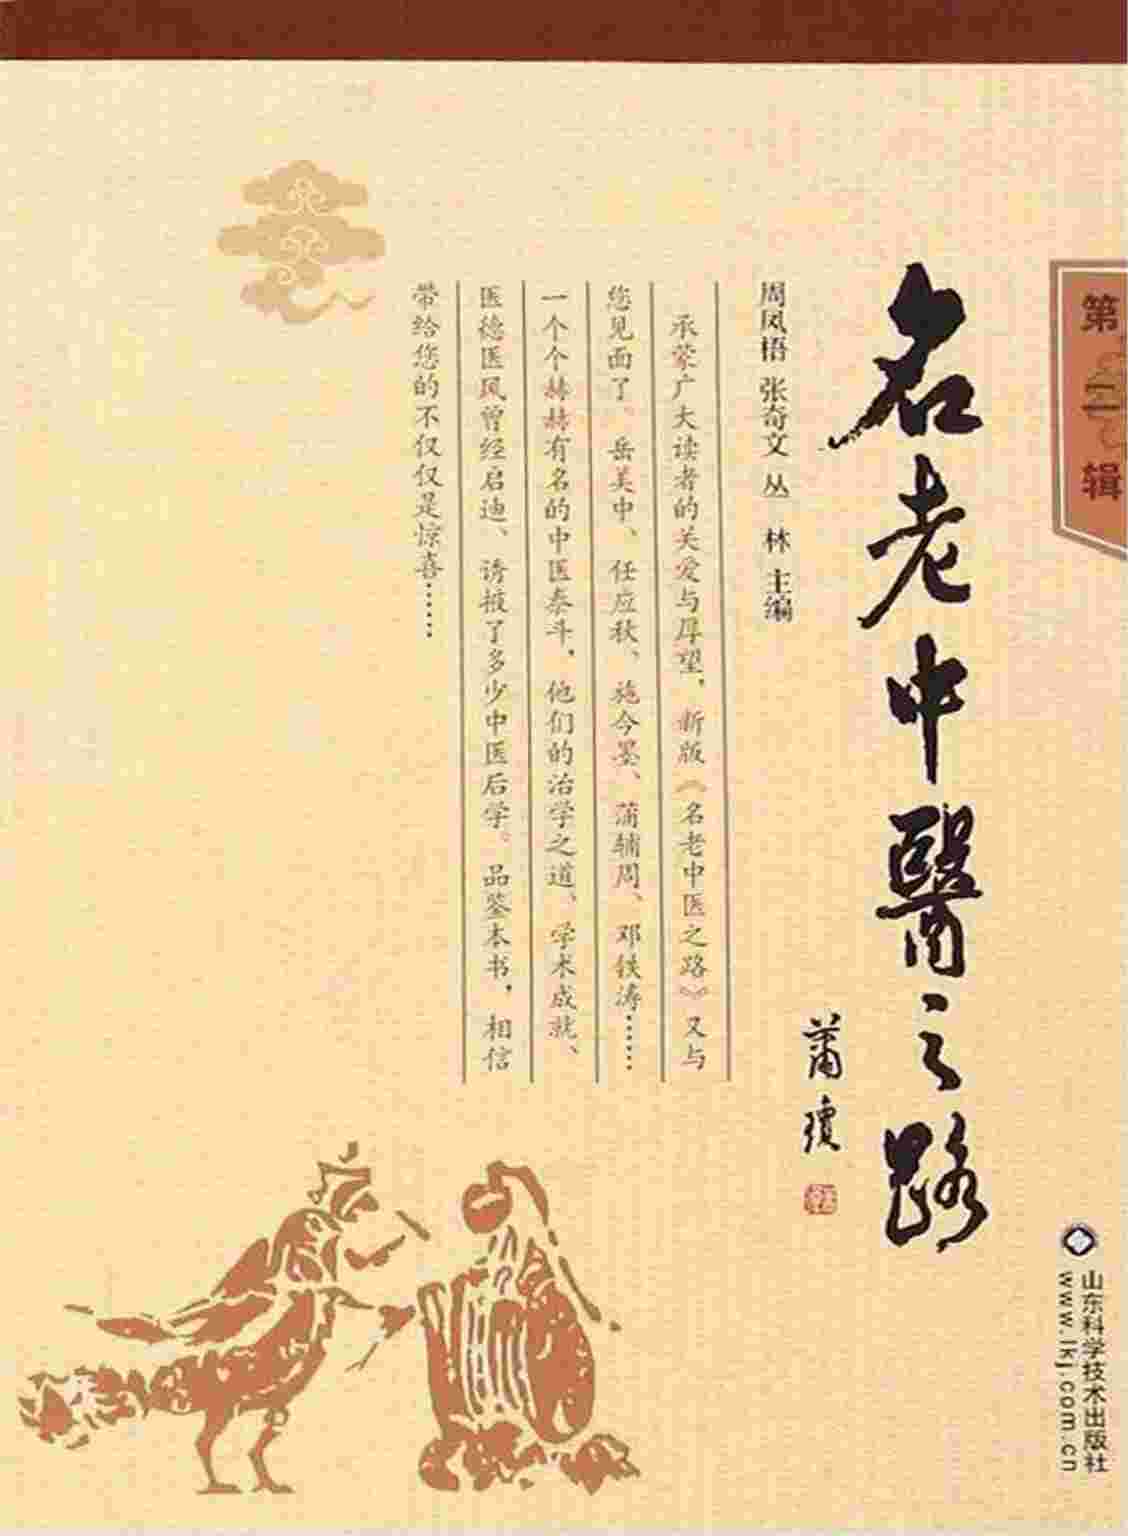 第二辑
名老中醫之路
蒲瓊
周凤梧 张奇文 丛 林 主编
承蒙广大读者的关爱与厚望，新版《名老中医之路》又与
您见面了。岳美中、任应秋、施今墨、蒲辅周、邓铁涛……
一个个赫赫有名的中医泰斗，他们的治学之道、学术成就、
医德医风曾经启迪、诱掖了多少中医后学。品鉴本书，相信
带给您的不仅仅是惊喜……
山东科学技术出版社
www.lkj.com.cn